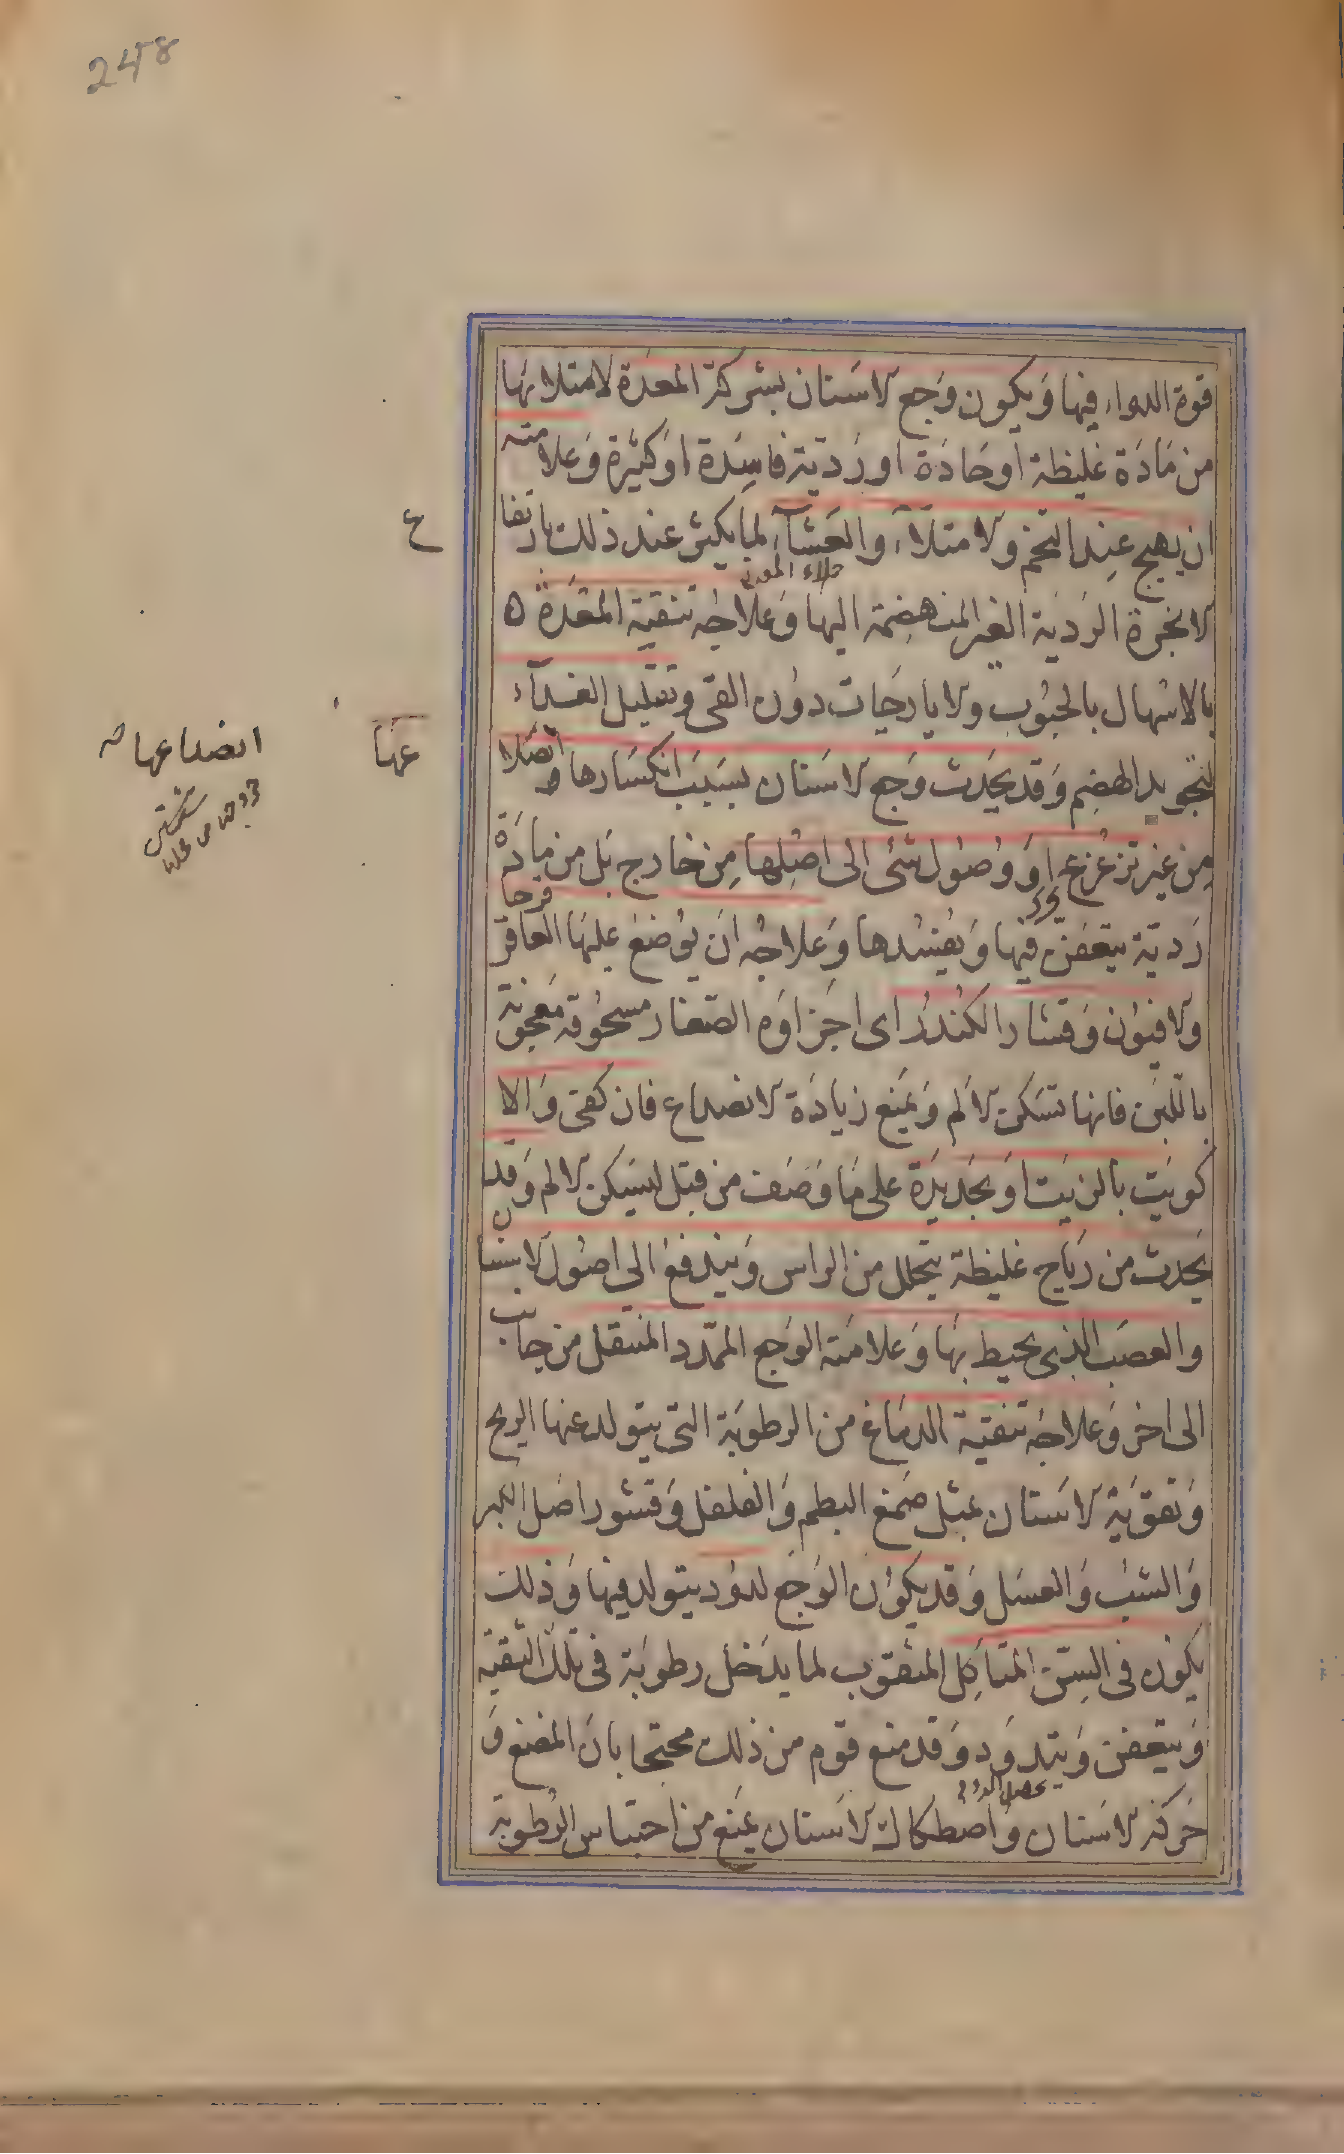 248
قوة الدواء فيها وَيكون وَجع الاسَنان بشركة المعدَة لامتلائها
من مَادَة غليظة اوحَادَة او رَديّة فاسِدَة اوكثيرة وَعلامته
ان يهيج عِند التخم والامتلآء والعَشآء لما يكثر عند ذلك ارتفا
ع
الابخرة الردَية الغير المنهضمة اليها وَعلاجه تنقية المعَدة ه
بالاسْهال بالحبُوب والايارجَات دوُن القى وتقليل الغدآء
لتجويد الهضم وَقد يحَدث وَجع الاسَنان بسَبَب انكسَارها وانصَدا
عها
انصداعها صح
من غير تزعزع او وصُول شئى الى اصْلها مِن خارج بَل من مادَة
رَديّة يتعفن فيها وَيفسُدها وَعلاجُه ان يوُضع عليهَا العاقر
قرحا
والافيوُن وَقشار الكندُر اى اجزاوَه الصّغار مسحُوقه مَعجونة
باللّبن فانها تسَكن الالَم وَيمنع زيادَة الانصداع فان كفى وَالا
كويَت بالزيَت اوَبحَديدَة على مَا وَصَف من قبل ليسَكن الالم وَقد
يَحدث من ريَاح غليظة يتحلل من الراس وَيندفع الى اصُول الاسنا
ن
والعصَب الذى يحيط بهَا وَعلامَته الوَجع الممّدد المنتقل من جانب
الى اخر وَعلاجُه تنقية الدمَاغ من الرطوبَة التى يتولد عنها الريح
وَتقوَيَة الاسَنان بمثل صَمغ البطم وَالفلفل وَقشور اصَل الكبر
وَالشبّ وَالعسَل وَقد يكوُن الوَجَع لدوُد يتولد فيها وَذلك
يكون فى السِن المتاكِل المثقوب لما يدخل رطوبَة فى تلك الثقبَة
وَيتعفن وَيتدوَد وَقد منع قوم من ذلك محتجا بان المضغ وَ
حَركة الاسَنان واصَطكاك الاسنان يمنع من احتباس الرُطوبة